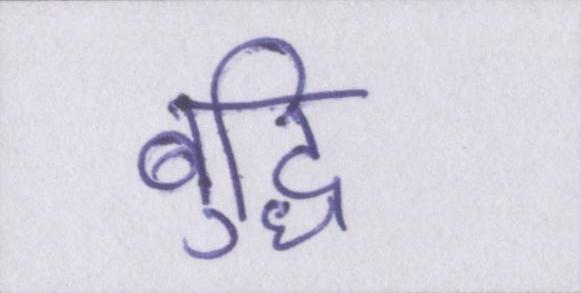 बुद्धि